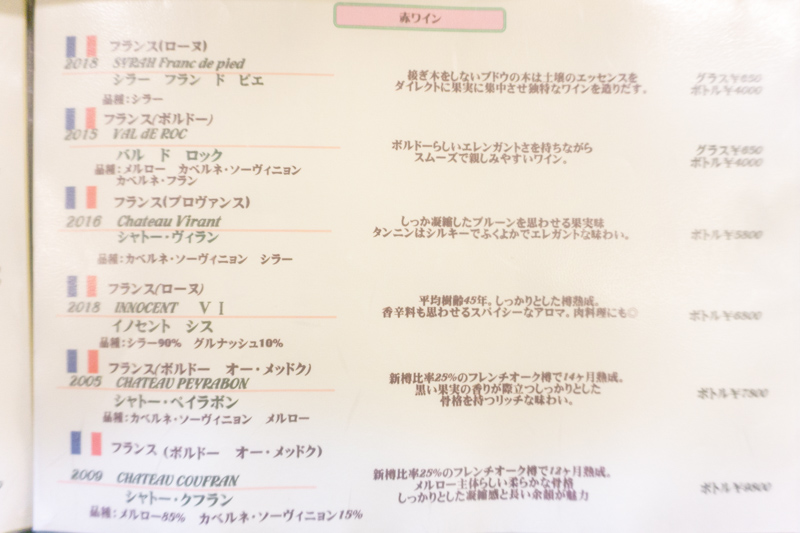 赤ワイン
フランス(ローヌ)
2018 SYRAH Franc de pied
シラー フラン ド ピエ
品種:シラー
接ぎ木をしないブドウの木は土壌のエッセンスを
ダイレクトに果実に集中させ独特なワインを造りだす。
グラス¥650
ボトル¥4000
フランス(ボルドー)
2015 VAL dE ROC
バル ド ロック
品種:メルロー カベルネ・ソーヴィニョン
カベルネ・フラン
ボルドーらしいエレンガントさを持ちながら
スムーズで親しみやすいワイン。
グラス¥650
ボトル¥4000
フランス(プロヴァンス)
2016 Chateau Virant
シャトー・ヴィラン
品種:カベルネ・ソーヴィニョン シラー
しっか凝縮したプルーンを思わせる果実味
タンニンはシルキーでふくよかでエレガントな味わい。
ボトル¥5800
フランス(ローヌ)
2018 INNOCENT VI
イノセント シス
品種:シラー90% グルナッシュ10%
平均樹齢45年。しっかりとした樽熟成。
香辛料も思わせるスパイシーなアロマ。肉料理にも◎
ボトル¥6800
フランス(ボルドー オー・メッドク)
2005 CHATEAU PEYRABON
シャトー・ペイラボン
品種:カベルネ・ソーヴィニョン メルロー
新樽比率25%のフレンチオーク樽で14ヶ月熟成。
黒い果実の香りが際立つしっかりとした
骨格を持つリッチな味わい。
ボトル¥7800
フランス(ボルドー オー・メッドク)
2009 CHATEAU COUFRAN
シャトー・クフラン
品種:メルロー85% カベルネ・ソーヴィニョン15%
新樽比率25%のフレンチオーク樽で12ヶ月熟成。
メルロー主体らしい柔らかな骨格
しっかりとした凝縮感と長い余韻が魅力
ボトル¥9800